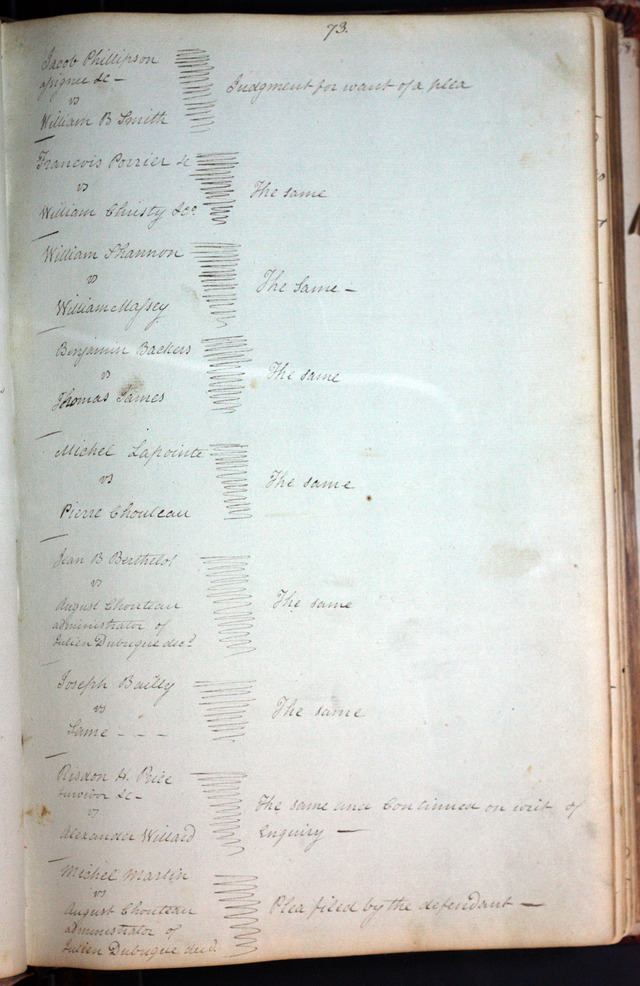 73.
Jacob Phillipson
assignee &c –
vs
William B Smith
Judgment for want of a plea
Francois Poirier &c
vs
William Christy &Co
The same
William Shannon
vs
William Massey
The same –
Benjamin Backers
vs
Thomas James
The same
Michel Lapointe
vs
Pierre Chouteau
The same
Jean B Berthelot
vs
August Chouteau
administrator of
Julien Dubuque decd
The same
Joseph Bailly
vs
Same – – –
The same
Risdon H. Price
survivor &c –
vs
Alexander Willard
The same and Continued on writ of
Enquiry –
Michel Martin
vs
August Chouteau
administrator of
Julien Dubuque decd.
Plea filed by the defendant –